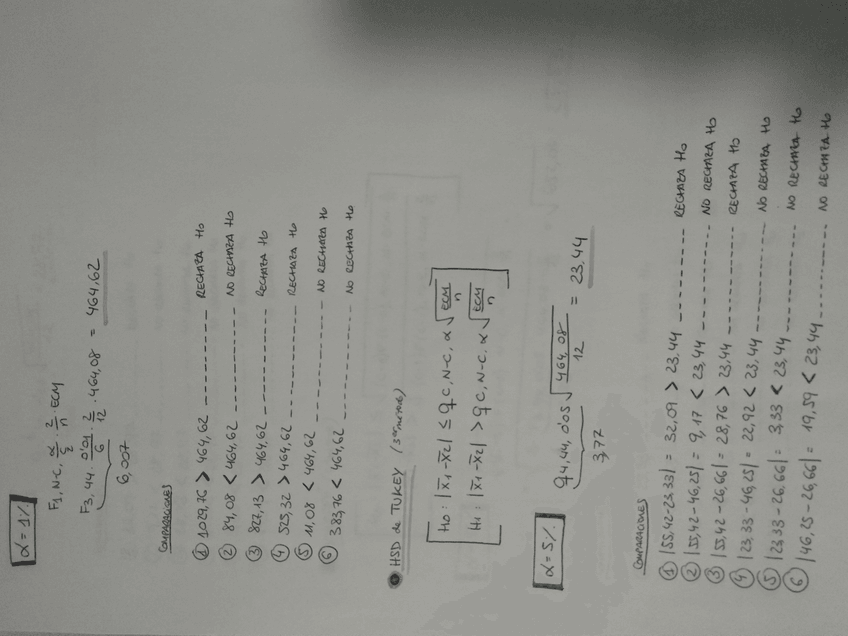 α = 1%
F1, N-C, α/2 · 2/n ECM
F3, 44 · 0'01/6 · 2/12 · 464,08 = 464,62
6,007
COMPARACIONES
① 1029,76 > 464,62 ---------- RECHAZA Ho
② 84,08 < 464,62 ---------- NO RECHAZA Ho
③ 827,13 > 464,62 ---------- RECHAZA Ho
④ 525,32 > 464,62 ---------- RECHAZA Ho
⑤ 11,08 < 464,62 ---------- NO RECHAZA Ho
⑥ 383,76 < 464,62 ---------- NO RECHAZA Ho
● HSD de TUKEY (3er método)
Ho: |x̄1-x̄2| ≤ q C, N-C, α √ECM/n
H1: |x̄1-x̄2| > q C, N-C, α √ECM/n
α = 5%
q4,44, 0'05 √464,08/12 = 23,44
3,77
COMPARACIONES
① |55,42-23,33| = 32,09 > 23,44 ---------- RECHAZA Ho
② |55,42-46,25| = 9,17 < 23,44 ---------- NO RECHAZA Ho
③ |55,42-26,66| = 28,76 > 23,44 ---------- RECHAZA Ho
④ |23,33-46,25| = 22,92 < 23,44 ---------- NO RECHAZA Ho
⑤ |23,33-26,66| = 3,33 < 23,44 ---------- NO RECHAZA Ho
⑥ |46,25-26,66| = 19,59 < 23,44 ---------- NO RECHAZA Ho